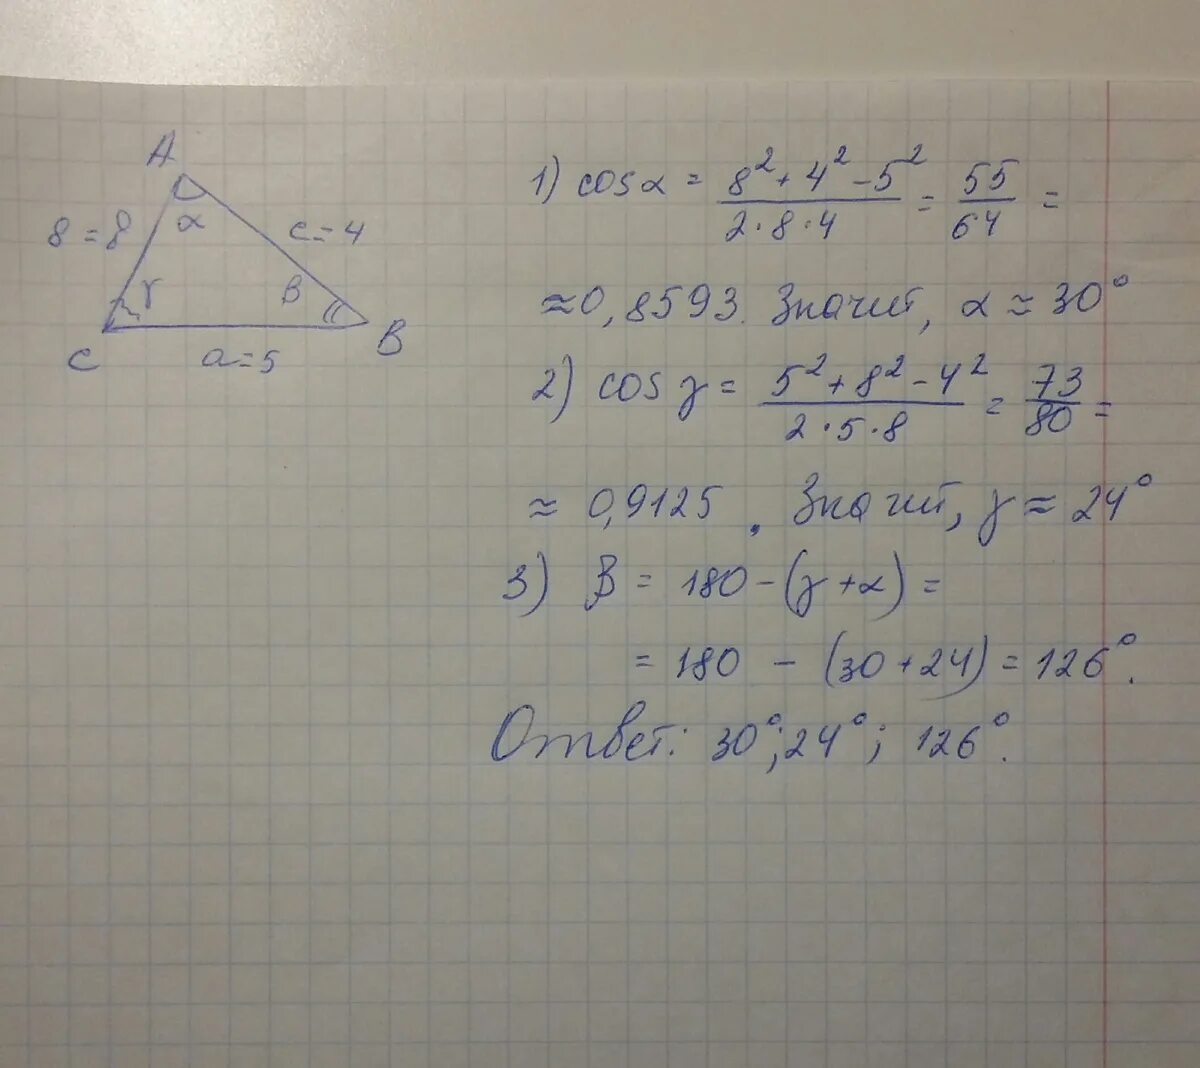 A
8 = 8
α
c = 4
γ
β
C
a = 5
B
1) cos α = (8² + 4² - 5²) / (2 · 8 · 4) = 55/64 =
≈ 0,8593. Значит, α ≈ 30°
2) cos γ = (5² + 8² - 4²) / (2 · 5 · 8) = 73/80 =
≈ 0,9125. Значит, γ ≈ 24°
3) β = 180 - (γ + α) =
= 180 - (30 + 24) = 126°.
Ответ: 30°; 24°; 126°.